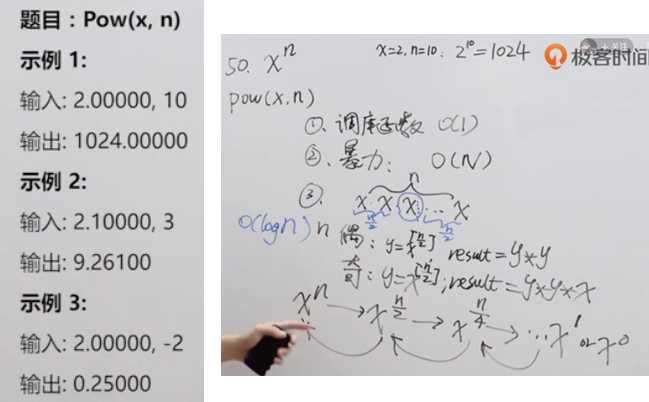 题目：Pow(x, n)
示例 1:
输入: 2.00000, 10
输出: 1024.00000
示例 2:
输入: 2.10000, 3
输出: 9.26100
示例 3:
输入: 2.00000, -2
输出: 0.25000
极客时间
50. xⁿ x=2, n=10: 2¹⁰=1024
pow(x,n)
①. 调库函数 O(1)
②. 暴力: O(N)
n
③. x·x·x·...x
n/2 n/2
O(logn) n 偶: y=x^[n/2] result=y*y
奇: y=x^[n/2]; result=y*y*x
xⁿ → x^(n/2) → x^(n/4) → ...x¹ or x⁰